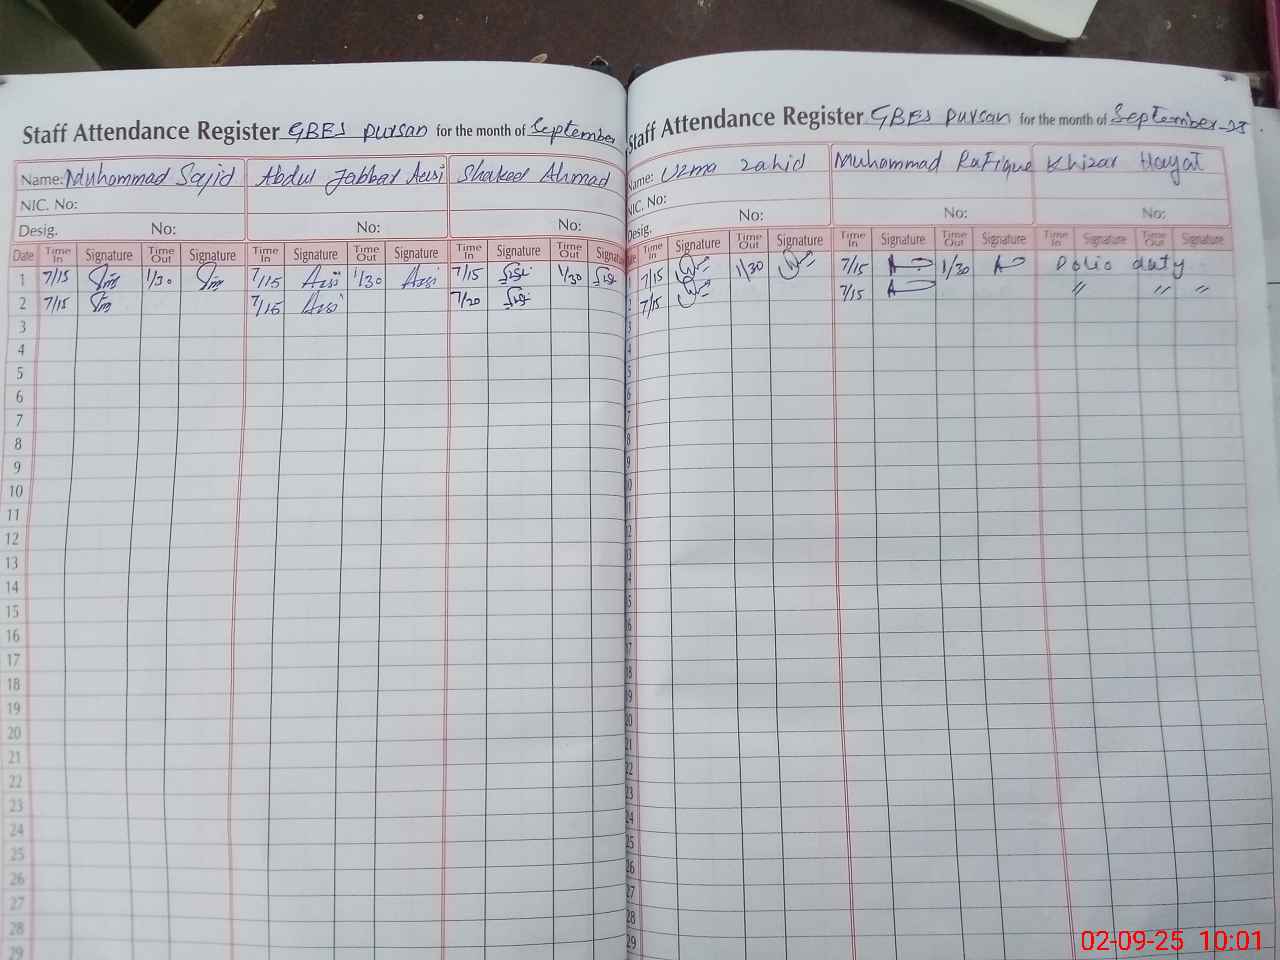 Staff Attendance Register GBES Pursan for the month of September
Name: Muhammad Sajid Abdul Jabbar Shakeel Ahmad
NIC. No:
Desig. No: No: No:
Date Time In Signature Time Out Signature Time In Signature Time Out Signature Time In Signature Time Out Signature
1 7/15 1/30 7/15 1/30 7/15 1/30
2 7/15 7/15 7/20
3
4
5
6
7
8
9
10
11
12
13
14
15
16
17
18
19
20
21
22
23
24
25
26
27
28
29
Staff Attendance Register GBES Pursan for the month of September-25
Name: Uzma Zahid Muhammad Rafique Khizar Hayat
NIC. No:
Desig. No: No: No:
Time In Signature Time Out Signature Time In Signature Time Out Signature Time In Signature Time Out Signature
7/15 1/30 7/15 1/30 Polio duty
2 7/15 7/15 〃 〃 〃
3
4
5
6
7
8
9
10
11
12
13
14
15
16
17
18
19
20
21
22
23
24
25
26
27
28
29
02-09-25 10:01